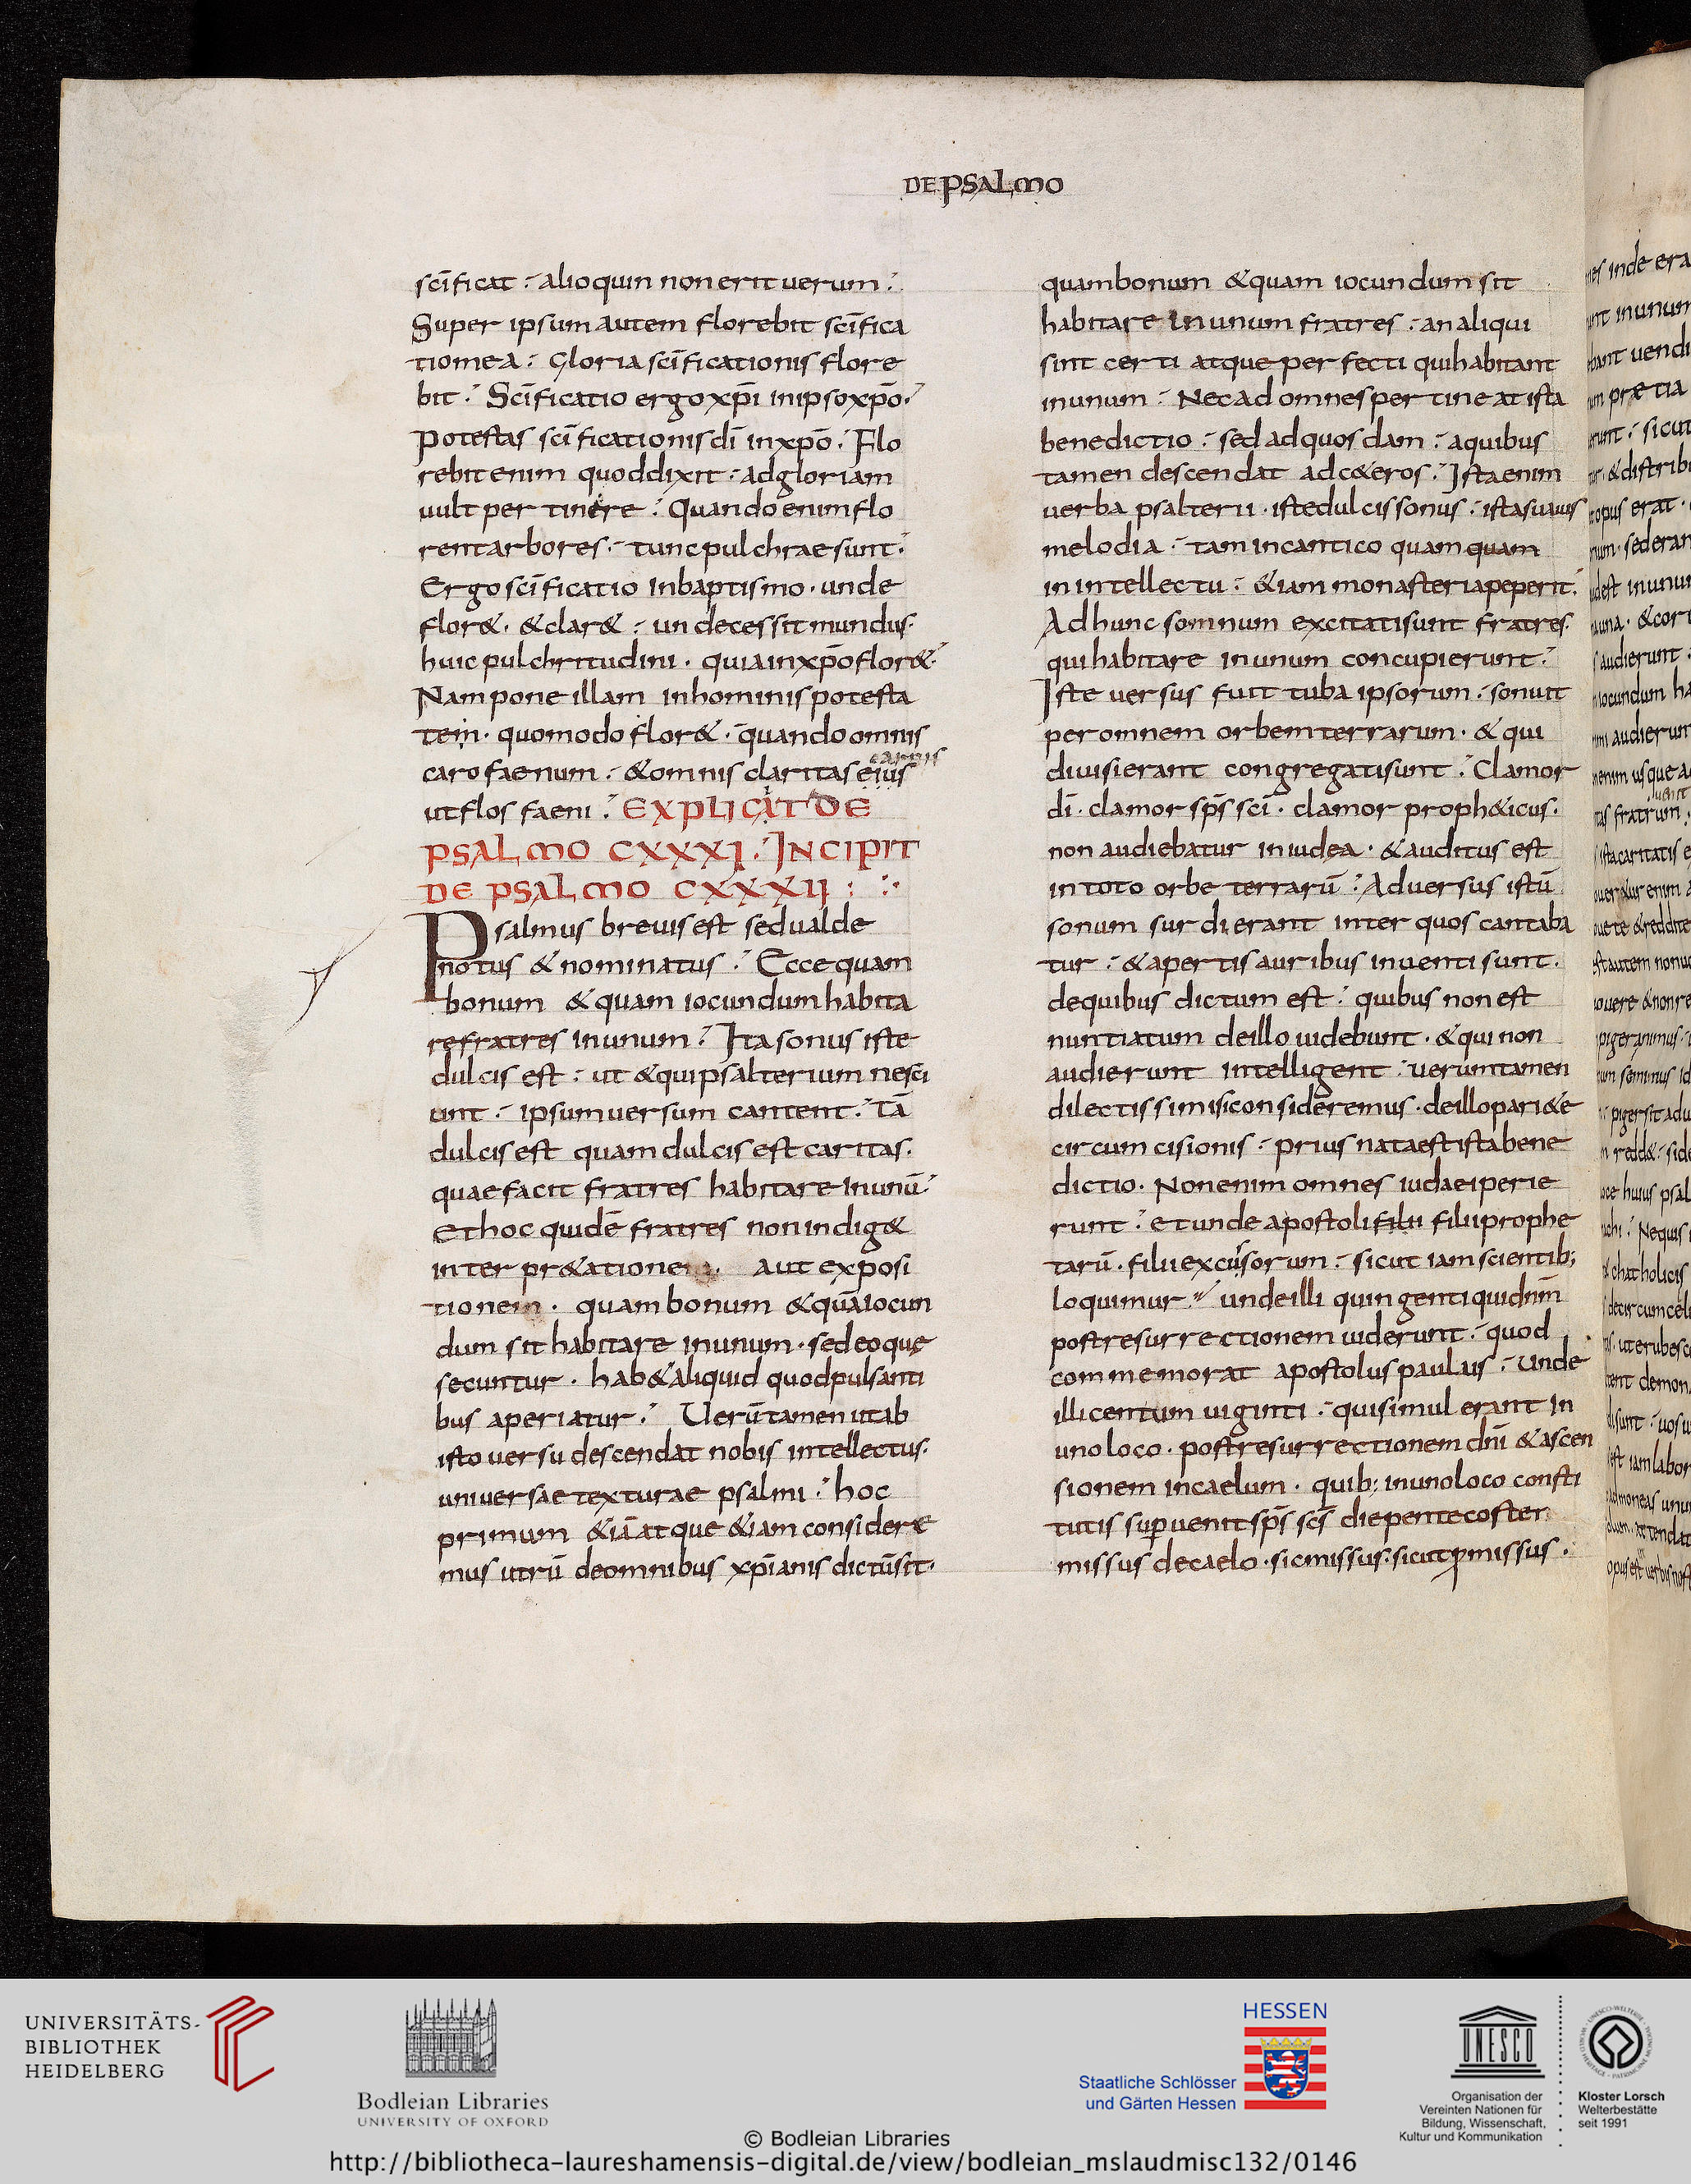 DE PSALMO
scīficat · alioquin non erit uerum ·
Super ipsum autem florebit scīfica
tio mea · Gloria scīficationis flore
bit · Scīficatio ergo xp̄i in ipso xp̄o ·
Potestas scīficationis dī in xp̄o · Flo
rebit enim quod dixit · ad gloriam
uult pertinere · Quando enim flo
rent arbores · tunc pulchrae sunt ·
Ergo scīficatio in baptismo · unde
flor& · & clar& · unde cessit mundus ·
huic pulchritudini · quia in xp̄o flor& ·
Nam pone illam in hominis potesta
tem · quomodo flor& · quando omnis
carnis
caro faenum · & omnis claritas eius
ut flos faeni · EXPLICIT DE
PSALMO CXXXI · INCIPIT
DE PSALMO CXXXII :
Psalmus breuis est sed ualde
notus & nominatus · Ecce quam
bonum & quam iocundum habita
re fratres in unum · Ita sonus iste
dulcis est · ut & qui psalterium nesci
unt · ipsum uersum cantent · Tā
dulcis est quam dulcis est caritas ·
quae facit fratres habitare in unū ·
Et hoc quidē fratres non indig&
interpr&atione · aut exposi
tionem · quam bonum & quā iocun
dum sit habitare in unum · sed eo que
secuntur · hab& aliquid quod pulsanti
bus aperiatur · Uerūtamen ut ab
isto uersu descendat nobis intellectus ·
uniuersae texturae psalmi · hoc
primum &iā atque &iam considere
mus utrū de omnibus xp̄ianis dictū sit ·
quam bonum & quam iocundum sit
habitare in unum fratres · an aliqui
sint certi atque perfecti qui habitant
in unum · Nec ad omnes pertineat ista
benedictio · sed ad quosdam · a quibus
tamen descendat ad c&eros · Ista enim
uerba psalterii · iste dulcis sonus · ista suauis
melodia · tam in cantico quam quam
in intellectu · &iam monasteria peperit ·
Ad hunc somnum excitati sunt fratres ·
qui habitare in unum concupierunt ·
Iste uersus fuit tuba ipsorum · sonuit
per omnem orbem terrarum · & qui
diuisi erant congregati sunt · Clamor
dī · clamor sp̄s scī · clamor proph&icus ·
non audiebatur in iudęa · & auditus est
in toto orbe terrarū · Aduersus istū
sonum surdi erant inter quos cantaba
tur · & apertis auribus inuenti sunt ·
de quibus dictum est · quibus non est
nuntiatum de illo uidebunt · & qui non
audierunt intelligent · uerumtamen
dilectissimi si consideremus · de illo pari&e
circumcisionis · prius nata est ista bene
dictio · Non enim omnes iudaei perie
runt · et unde apostoli filii filii prophe
tarū · filii excusorum · sicut iam scientib;
loquimur · unde illi quingenti qui dn̄m
post resurrectionem uiderunt · quod
commemorat apostolus paulus · Unde
illi centum uiginti · qui simul erant in
uno loco · post resurrectionem dn̄i & ascen
sionem in caelum · quib; in uno loco consti
tutis superuenit sp̄s scs̄ die pentecosten
missus de caelo · sic missus · sicut promissus ·
UNIVERSITÄTS-
BIBLIOTHEK
HEIDELBERG
Bodleian Libraries
UNIVERSITY OF OXFORD
HESSEN
Staatliche Schlösser
und Gärten Hessen
UNESCO
Organisation der
Vereinten Nationen für
Bildung, Wissenschaft,
Kultur und Kommunikation
Kloster Lorsch
Welterbestätte
seit 1991
© Bodleian Libraries
http://bibliotheca-laureshamensis-digital.de/view/bodleian_mslaudmisc132/0146